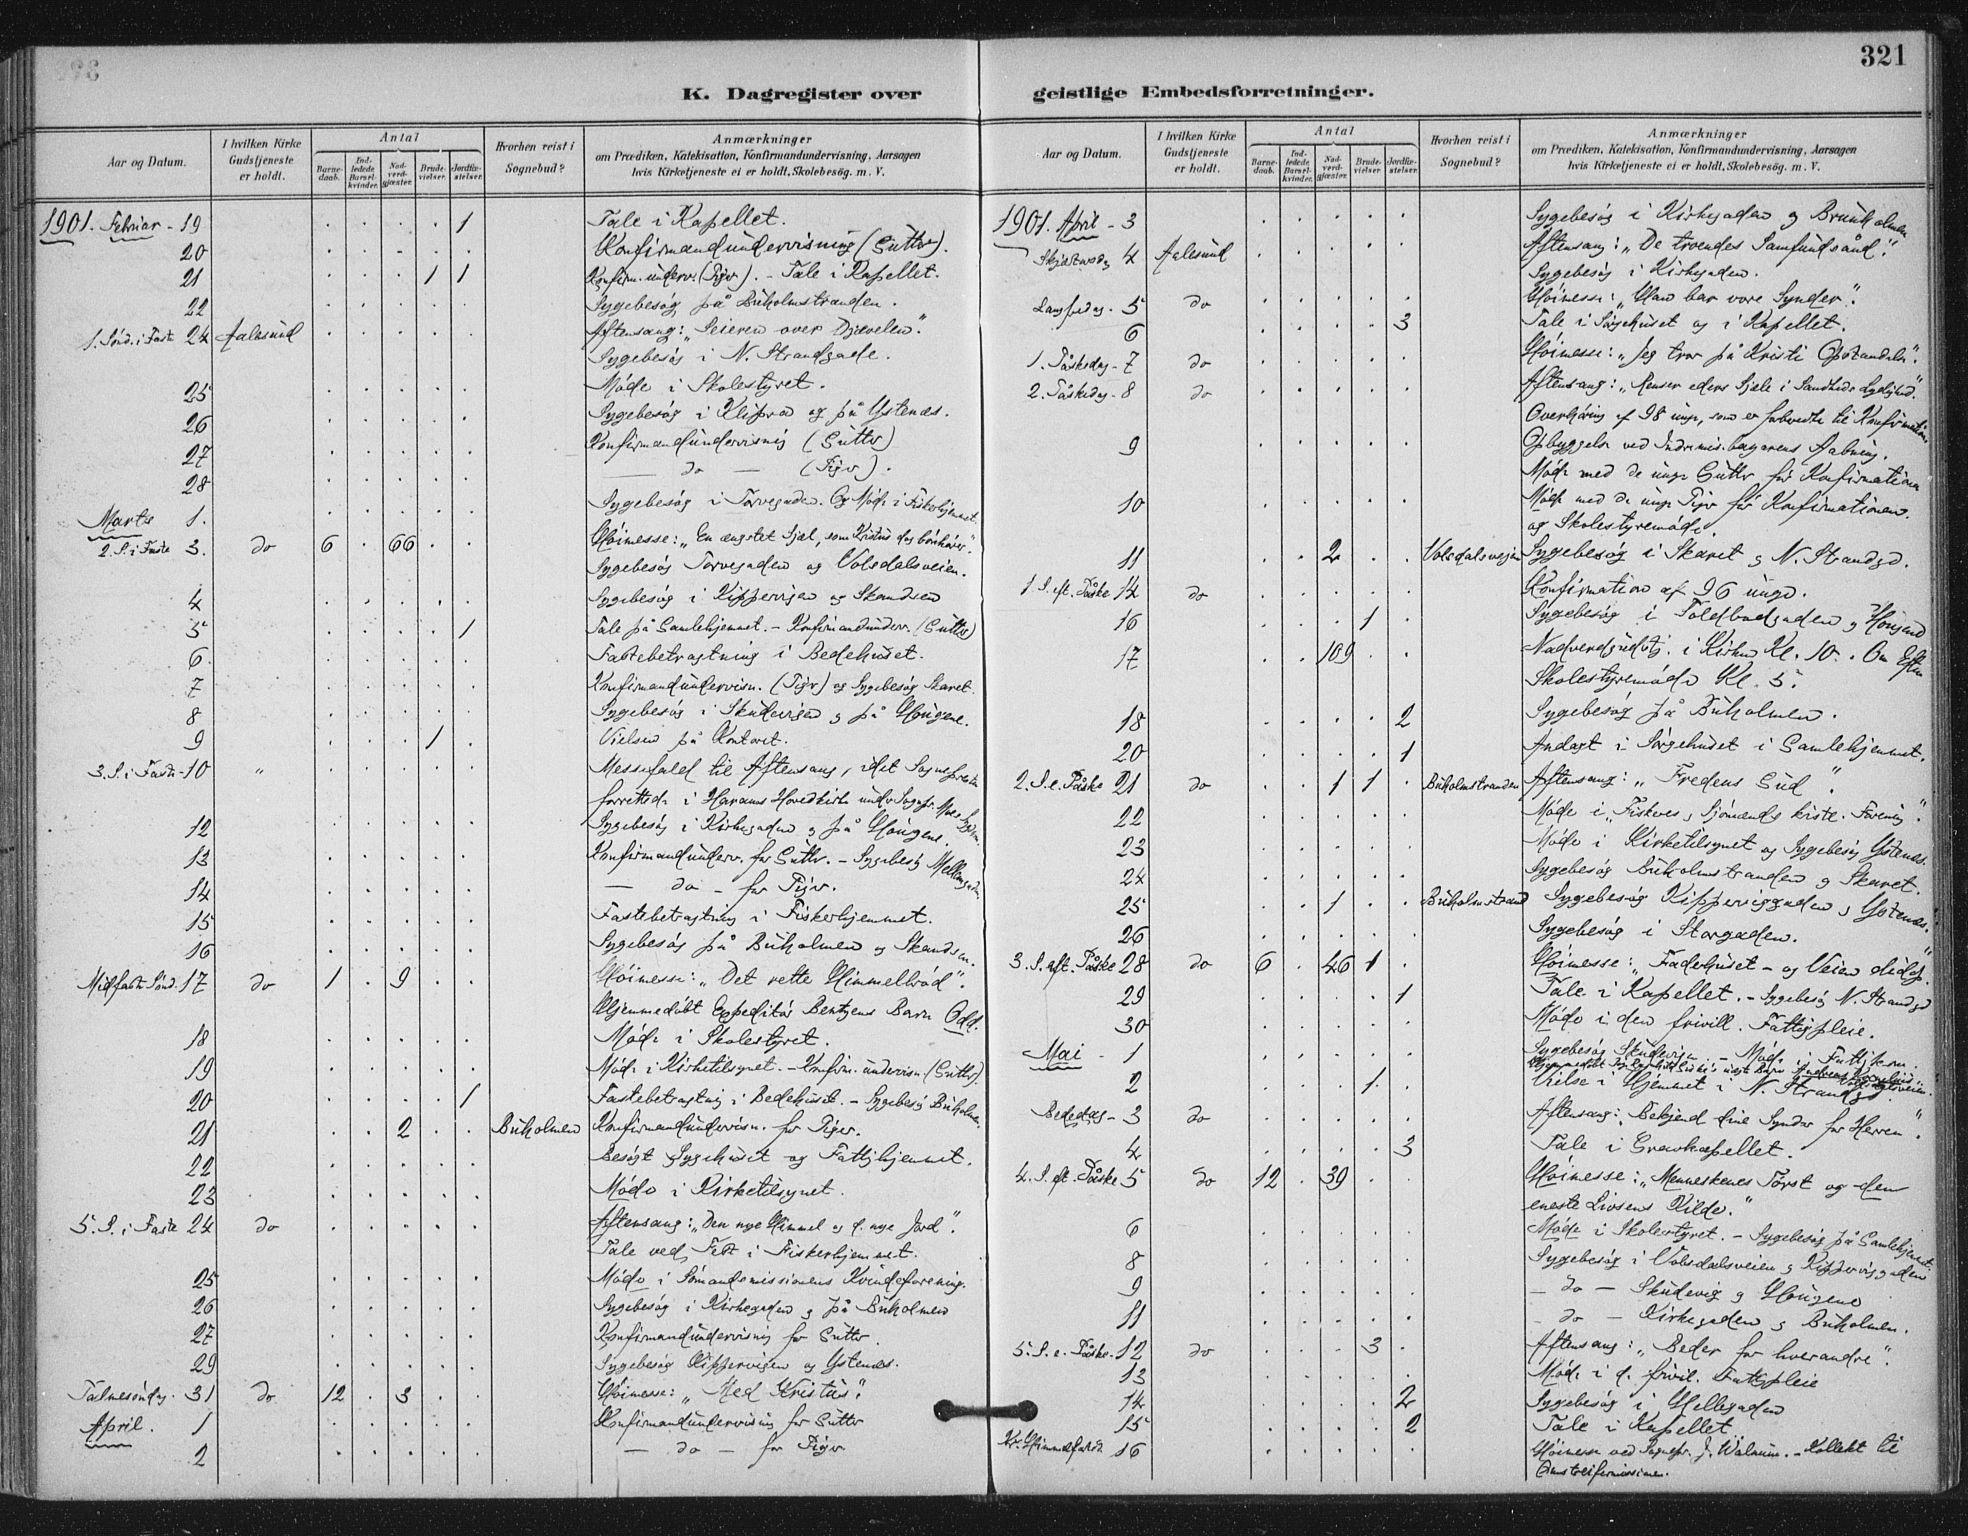 321
K. Dagregister over geistlige Embedsforretninger.
Aar og Datum. I hvilken Kirke Gudstjeneste er holdt. Antal Barne-daab. Ind-ledede Barsel-kvinder. Nad-verd-gjæster. Brude-vielser. Jordfæ-stelser. Hvorhen reist i Sognebud? Anmærkninger om Prædiken, Katekisation, Konfirmandundervisning, Aarsagen hvis Kirketjeneste ei er holdt, Skolebesög. m. V.
1901. Februar - 19 1 Tale i Kapellet.
20 Konfirmandundervisning (Gutter).
21 1 1 Konfirm. underv. (Piger). - Tale i Kapellet.
22 Sygebesög på Buholmstranden.
1. Sönd. i Faste 24 Aalesund Aftensang: „Seieren over Djævelen".
Sygebesög i N. Strandgade.
25 Möde i Skolestyret.
26 Sygebesög i Klipra og på Ystenæs.
27 Konfirmandundervisning (Gutter)
28 — do — (Piger).
Marts 1. Sygebesög i Torvegaden. Og Möde i Fiskerhjemmet.
2. S. i Faste 3. do 6 66 Höimesse: „En ængstet Sjæl, som Kristus dog bönhörer".
Sygebesög Torvegaden og Volsdalsveien.
4 Sygebesög i Kippervigen og Skandsen
5 1 Tale på Gamlehjemmet. - Konfirmandunderv. (Gutter)
6. Fastebetragtning i Bedehuset.
7 Konfirmandundervisn. (Piger) og Sygebesög Skaret.
8 Sygebesög i Skudevigen og på Hougene.
9 1 Vielsen på Kontoret.
3. S. i Faste 10 " Messefald til Aftensang, idet Sognepresten
forrettede i Harams Hovedkirke under Sognepr.
12 Sygebesög i Kirkegaden og på Hougene.
13 Konfirmandunderv. for Gutter. - Sygebesög Mellemgaden
14 — do — for Piger.
15 Fastebetragtning i Fiskerhjemmet.
16 Sygebesög på Buholmen og Skandsen.
Midfaste Sönd. 17 do 1 9 Höimesse: „Det rette Himmelbröd".
Hjemmedöbt Expeditör Bentzens Barn Odd.
18 Möde i Skolestyret.
19 Möde i Kirketilsynet. - Konfirm. undervisn. (Gutter).
20 1 Fastebetragtning i Bedehuset. - Sygebesög Buholmen.
21 2 Buholmen Konfirmandundervisn. for Piger.
22 Besögt Sygehuset og Fattighjemmet.
23 Möde i Kirketilsynet.
5. S. i Faste 24 do Aftensang: „Den nye Himmel og d. nye Jord".
Tale ved Fest i Fiskerhjemmet.
25 Möde i Sömandsmissionens Kvindeforening.
26 Sygebesög i Kirkegaden og på Buholmen
27 Konfirmandundervisning for Gutter.
29 Sygebesög Kippervigen og Ystenæs.
Palmesöndag. 31 do 12 3 Höimesse: „Med Kristus".
April. 1 Konfirmandundervisning for Gutter
2 — do — for Piger
Aar og Datum. I hvilken Kirke Gudstjeneste er holdt. Antal Barne-daab. Ind-ledede Barsel-kvinder. Nad-verd-gjæster. Brude-vielser. Jordfæ-stelser. Hvorhen reist i Sognebud? Anmærkninger om Prædiken, Katekisation, Konfirmandundervisning, Aarsagen hvis Kirketjeneste ei er holdt, Skolebesög. m. V.
1901. April - 3 Sygebesög i Kirkegaden og Brunholmen
Skjærtorsdag 4 Aalesund Aftensang: „De troendes Samfundsånd".
Sygebesög i Kirkegaden.
Langfredag - 5 do Höimesse: „Han bar vore Synder".
6 3 Tale i Sörgehuset og i Kapellet.
1. Påskedag - 7 do Höimesse: „Jeg tror på Kristi Opstandelse".
2. Påskedag - 8 do Aftensang: „Renser eders Sjæle i Sandheds Lydighed".
Overhöring af 98 unge, som er forberedte til Konfirmation
9 Opbyggelse ved Aabning.
Möde med de unge Gutter för Konfirmationen
10 Möde med de unge Piger för Konfirmationen.
og Skolestyremöde.
11 2 Volsdalsveien Sygebesög i Skaret og N. Strandgd.
1 S. eft. Påske 14 do Konfirmation af 96 unge.
16 1 Sygebesög i Toldbodgaden og Hougene
17 109 Nadverdgudstj. i Kirken Kl. 10. - Om Eftm
Skolestyremöde Kl. 5.
18 2 Sygebesög på Buholmen.
20 1 Andagt i Sörgehuset i Gamlehjemmet.
2. S. e. Påske 21 do 1 1 Buholmstranden Aftensang: „Fredens Gud".
22 Möde i „Fiskeres og Sjömænds kristr. Forening".
23 Möde i Kirketilsynet og Sygebesög Ystenæs.
24 Sygebesög Buholmstranden og Skaret.
25 1 Buholmstrand Sygebesög Kipperviggaden og Ystenæs.
26 Sygebesög i Storgaden.
3. S. eft. Påske 28 do 6 46 1 Höimesse: „Faderhuset - og Veien didop".
29 1 Tale i Kapellet. - Sygebesög N. Strandgd
30 Möde i den frivill. Fattigpleie.
Mai - 1 Sygebesög Skudevigen - Möde i Fattigkom.
2 1 Vielse i Hjemmet i N. Strandgd
Bededag - 3 do Aftensang: „Bekjend dine Synder for Herren".
4 3 Tale i Gravkapellet.
4. S. eft. Påske 5 do 12 39 Höimesse: „Menneskenes Törst og den
eneste Livsens Kilde."
6 Möde i Skolestyret. - Sygebesög på Gamlehjemmet.
8 Sygebesög i Volsdalsveien og Kippervigsgaden
9 — do — Skudevig og Hougene
11 — do — Kirkegaden og Buholmen.
5. S. e. Påske. 12 do 3 Aftensang: „Beder for hverandre".
13 Möde i d. frivil. Fattigpleie
14 2 Sygebesög i Hellegaden
15 2 Tale i Kapellet
Kr. Himmelfartsd. 16 Höimesse ved Sognepr. J. Walnum. - Kollekt til